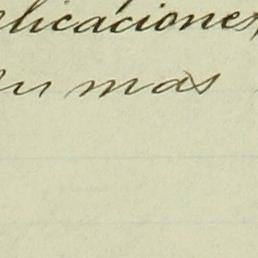 licaciones,
su mas